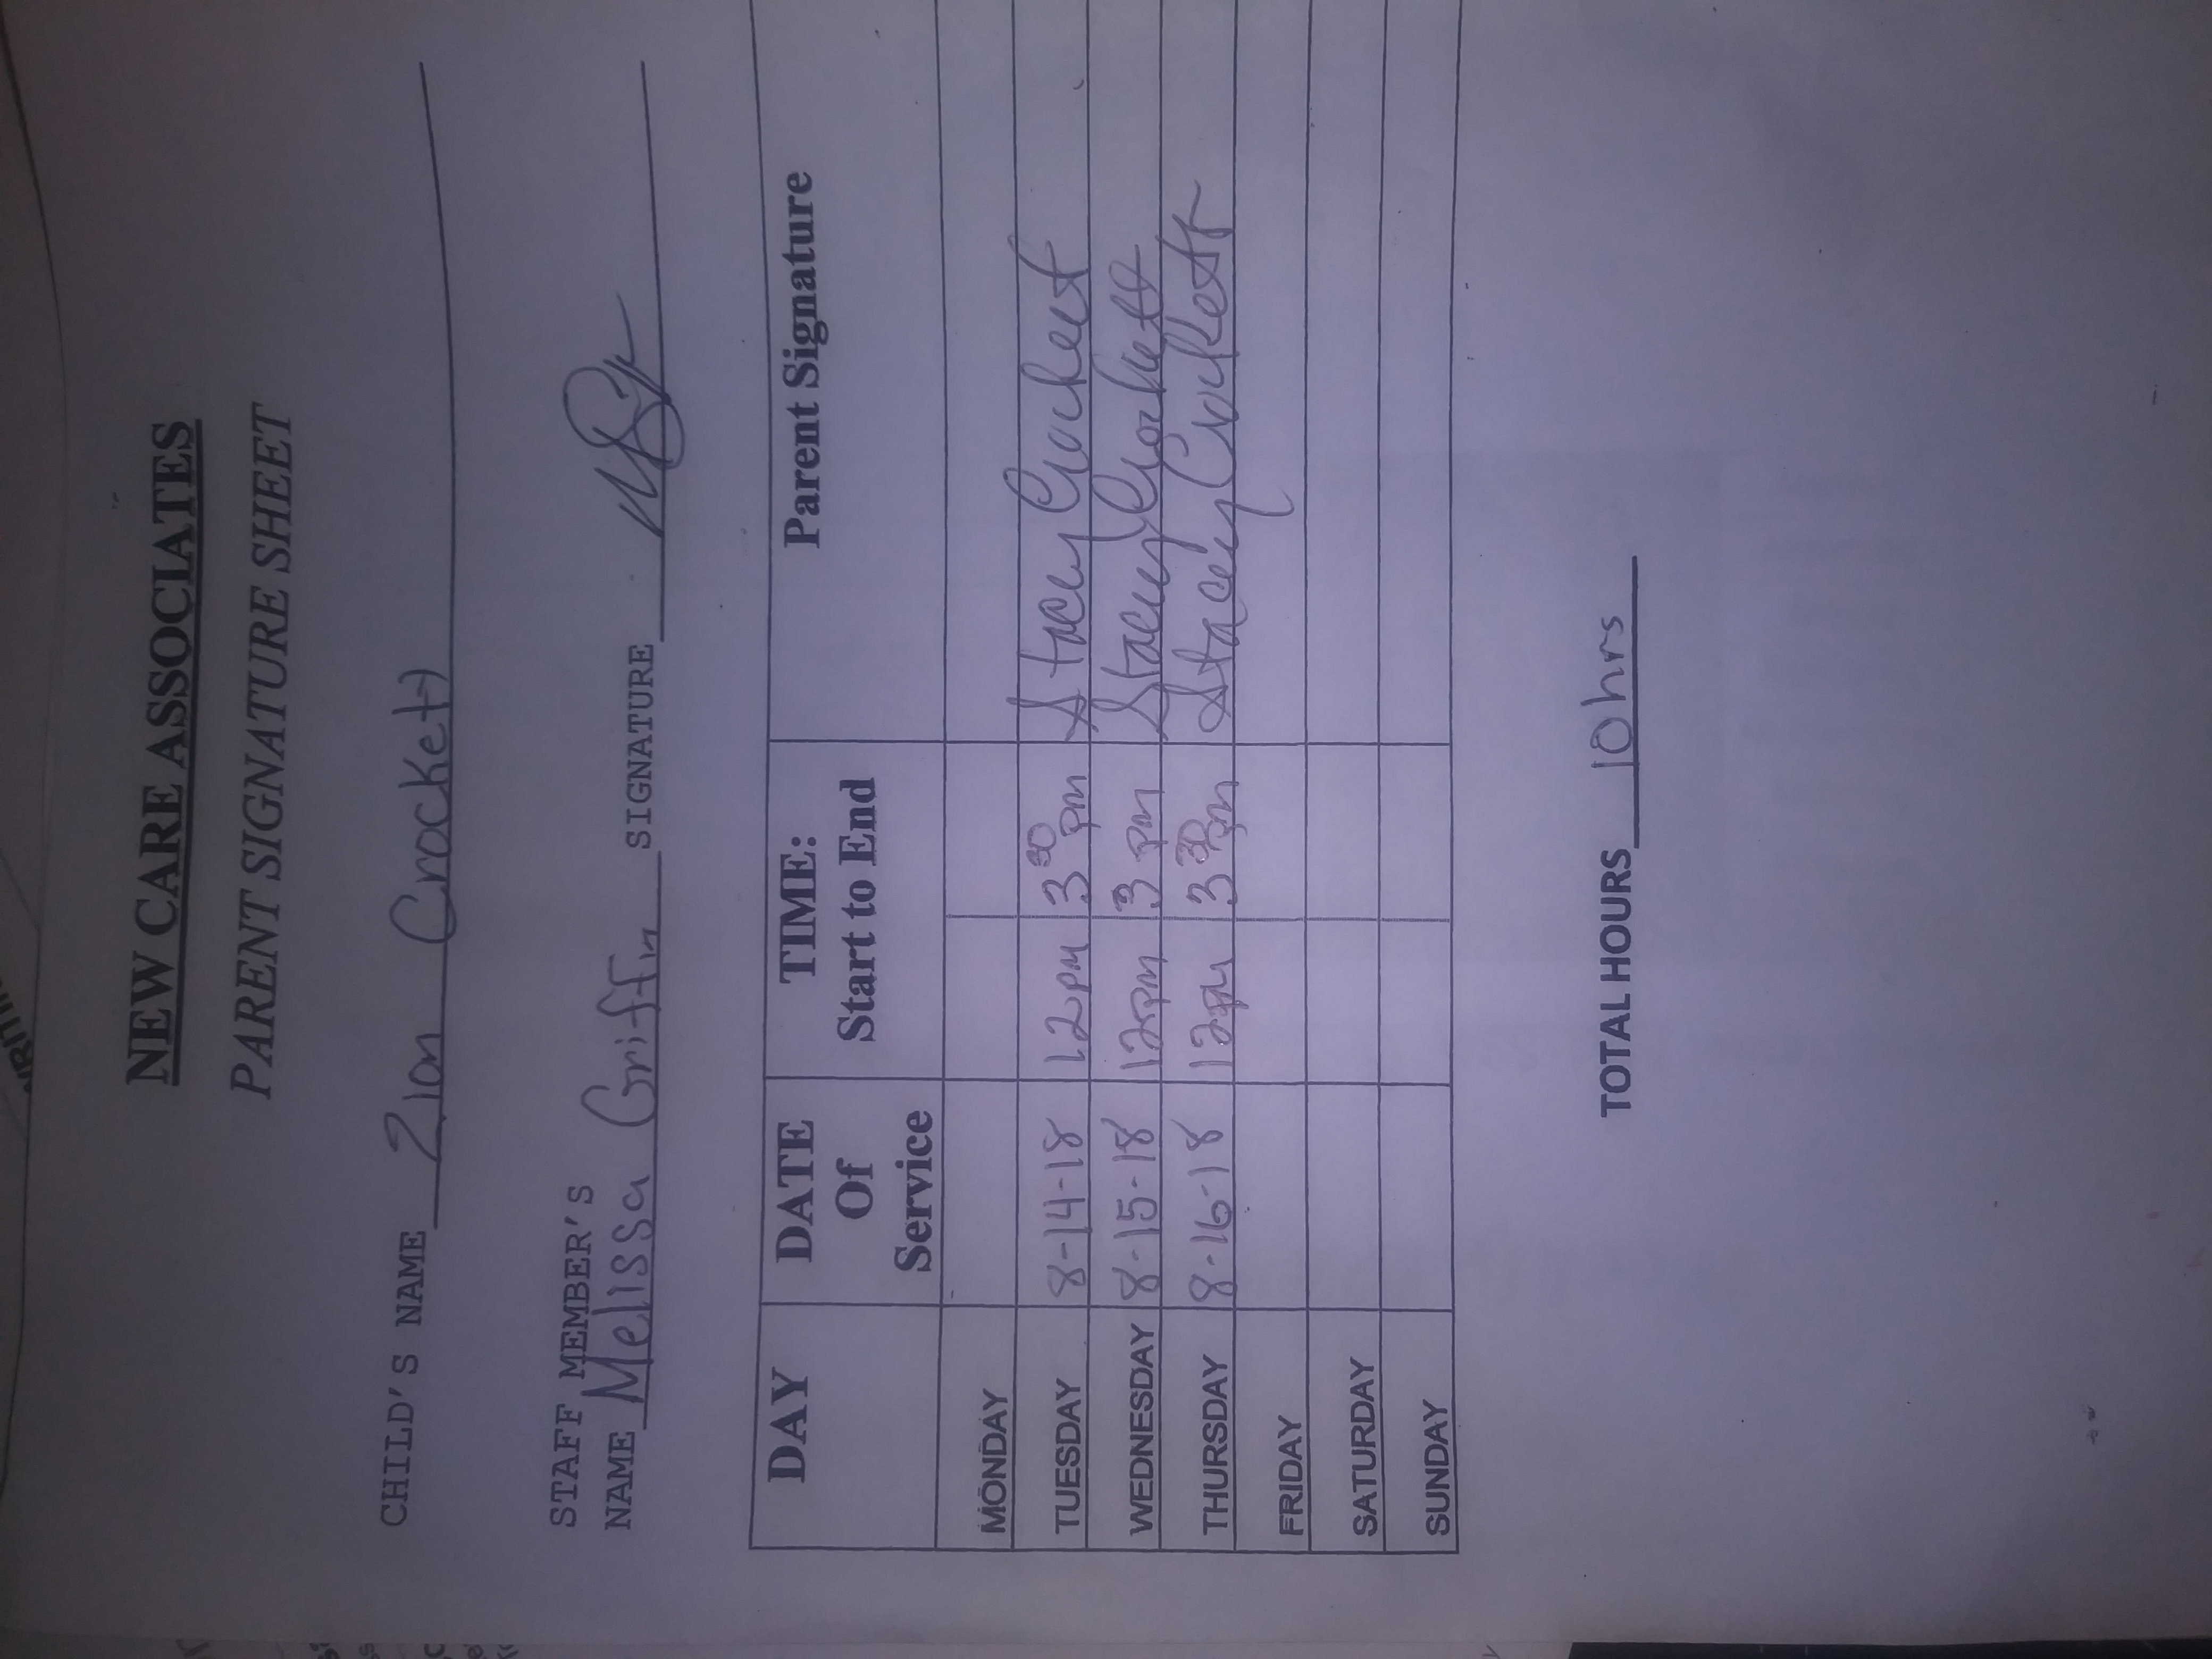 NEW CARE ASSOCIATES
PARENT SIGNATURE SHEET
CHILD'S NAME Zion Crockett
STAFF MEMBER'S
NAME Melissa Griffin SIGNATURE
DAY DATE Of Service TIME: Start to End Parent Signature
MONDAY
TUESDAY 8-14-18 12pm 3 30 pm Stacey Crockett
WEDNESDAY 8-15-18 12pm 3 pm Stacey Crockett
THURSDAY 8-16-18 12pm 3 30 pm Stacey Crockett
FRIDAY
SATURDAY
SUNDAY
TOTAL HOURS 10hrs